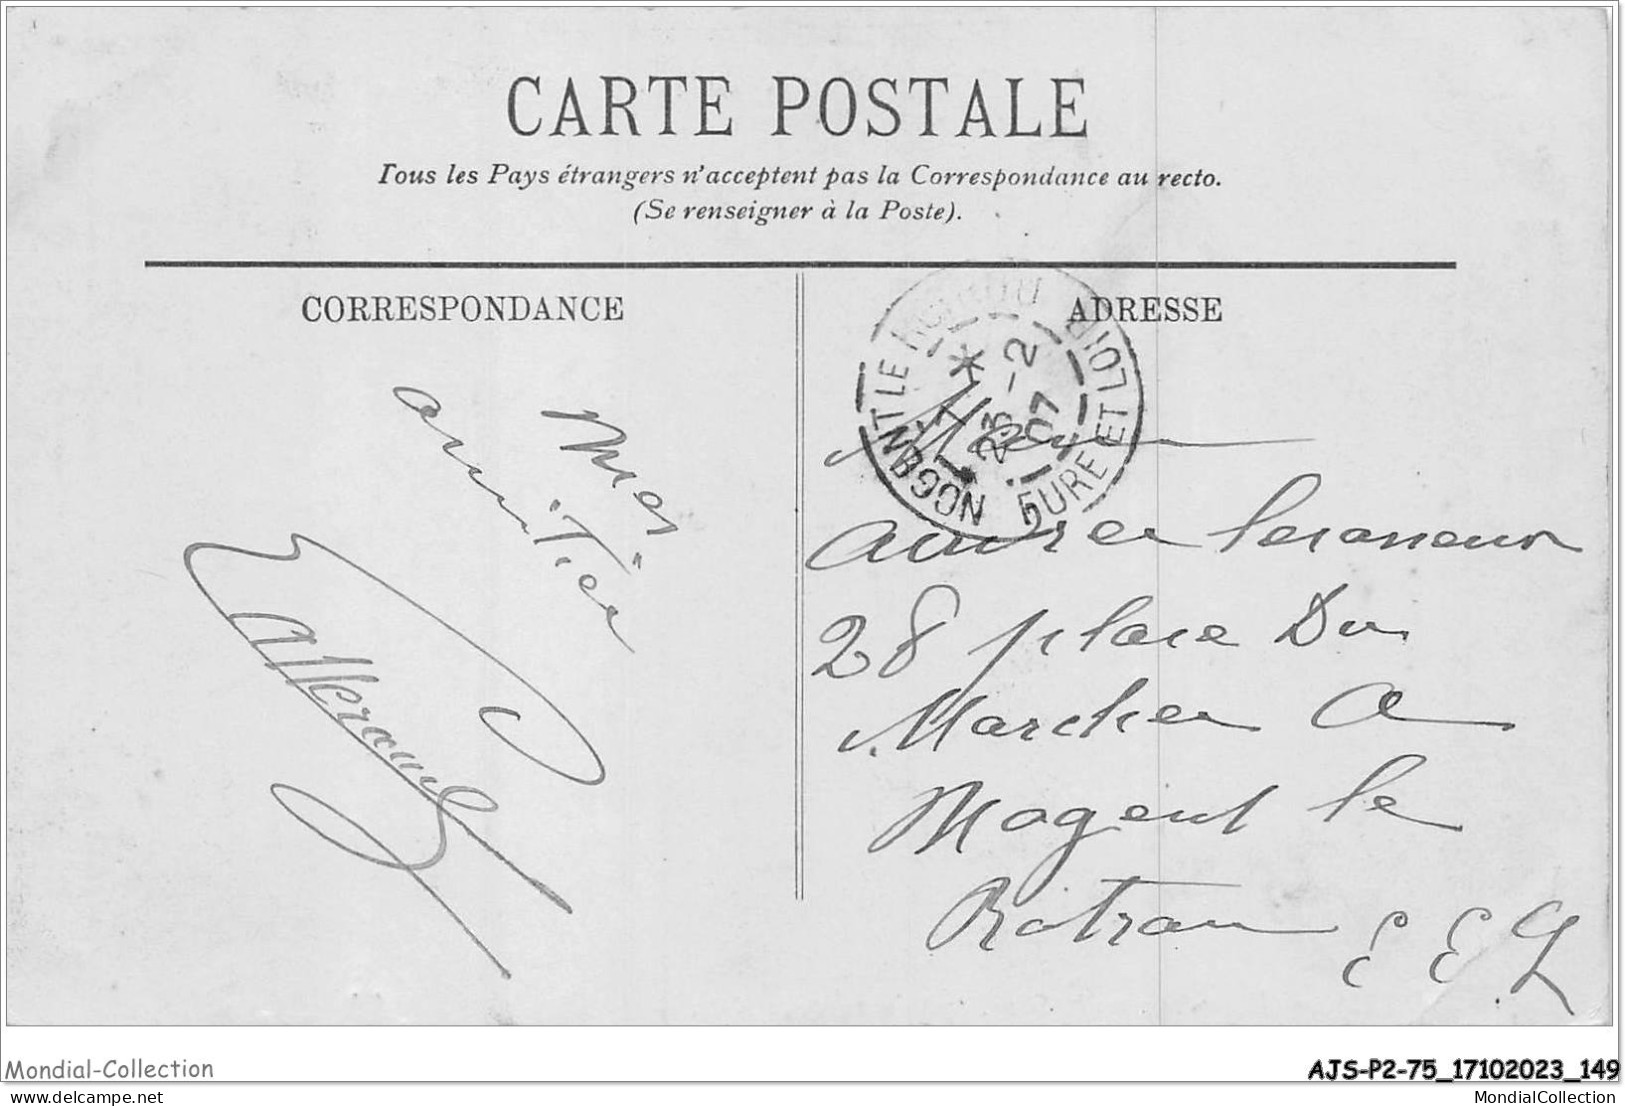 CARTE POSTALE
Tous les Pays étrangers n'acceptent pas la Correspondance au recto.
(Se renseigner à la Poste).
CORRESPONDANCE
ADRESSE
NOGENT LE ROTROU
EURE ET LOIR
23 - 2
07
Mes
amitiés
28 place Du
Marcher A
Nogent le
Rotrou E E L
Mondial-Collection
AJS-P2-75_17102023_149
delcampe.net
MondialCollection